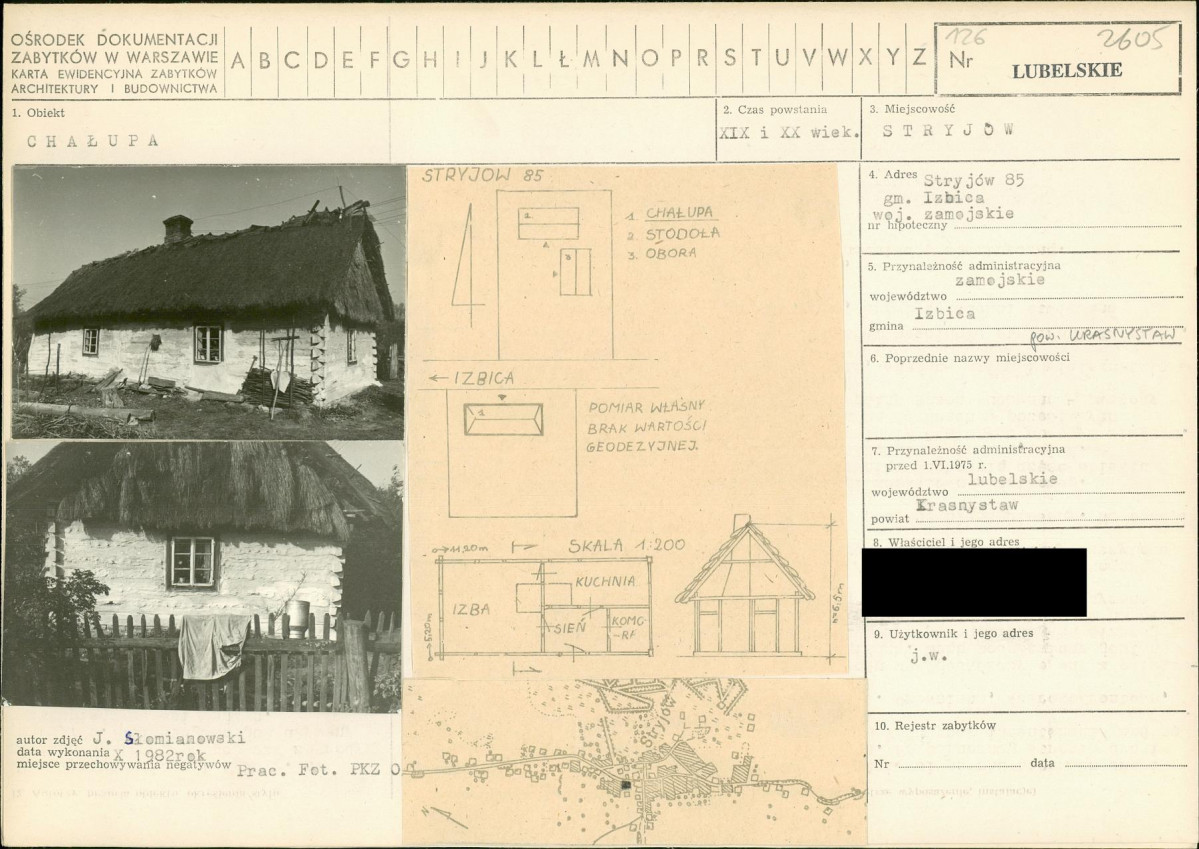 OŚRODEK DOKUMENTACJI
ZABYTKÓW W WARSZAWIE
KARTA EWIDENCYJNA ZABYTKÓW
ARCHITEKTURY I BUDOWNICTWA
A B C D E F G H I J K L Ł M N O P R S T U V W X Y Z
126
2605
Nr
LUBELSKIE
1. Obiekt
CHAŁUPA
2. Czas powstania
XIX i XX wiek.
3. Miejscowość
STRYJÓW
4. Adres Stryjów 85
gm. Izbica
woj. zamojskie
nr hipoteczny
5. Przynależność administracyjna
zamojskie
województwo
Izbica
gmina
pow. KRASNYSTAW
6. Poprzednie nazwy miejscowości
7. Przynależność administracyjna
przed 1.VI.1975 r.
lubelskie
województwo
Krasnystaw
powiat
8. Właściciel i jego adres
9. Użytkownik i jego adres
j.w.
10. Rejestr zabytków
Nr
data
STRYJOW 85
1. CHAŁUPA
2. STODOŁA
3. OBORA
2
3
← IZBICA
1
POMIAR WŁASNY
BRAK WARTOŚCI
GEODEZYJNEJ.
SKALA 1:200
11,20m
5,20m
IZBA
KUCHNIA
SIEŃ
KOMO-
-RA
h=6,5m
Stryjów
N
autor zdjęć J. Słomianowski
data wykonania X 1982rok
miejsce przechowywania negatywów Prac. Fot. PKZ O